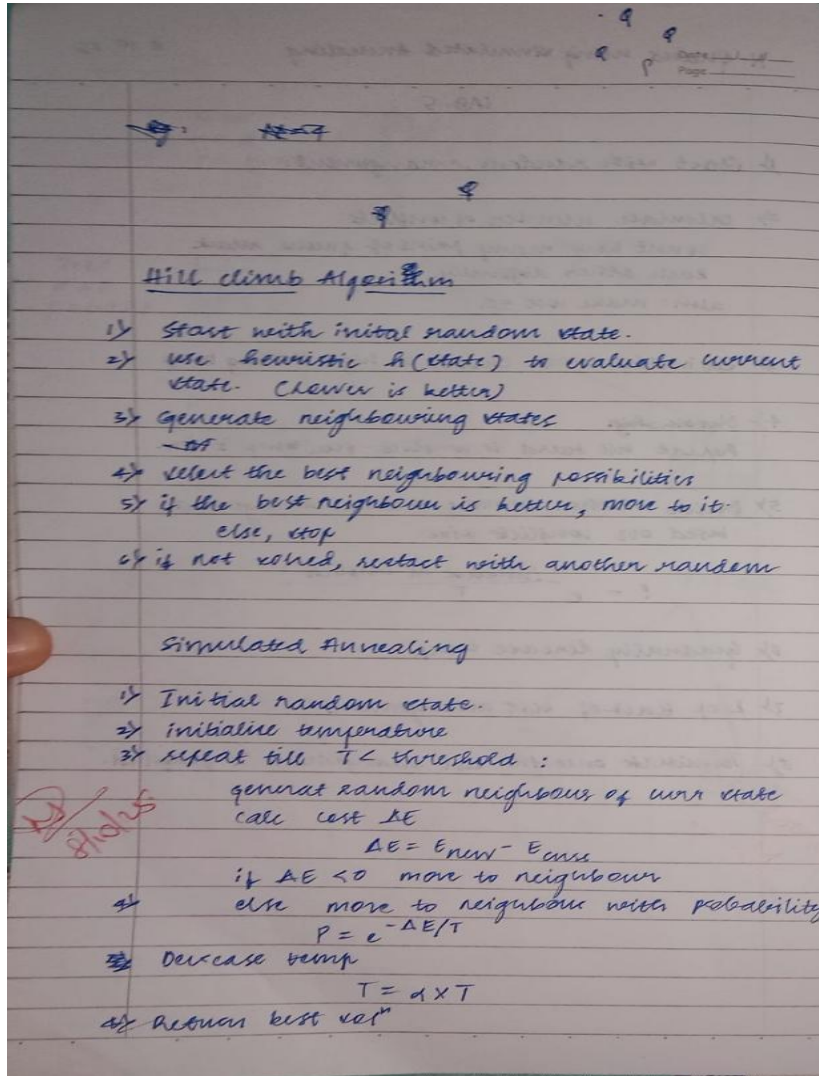 Q
Q
Q
P
Date
Page
Q
Q
Hill climb Algorithm
1) Start with inital random state.
2) use heuristic h(state) to evaluate current
state. (lower is better)
3) Generate neighbouring states
4) select the best neighbouring possibilities
5) if the best neighbour is better, move to it.
else, stop
6) if not solved, restart with another random
Simulated Annealing
1) Initial random state.
2) initialise temperature
3) repeat till T < threshold :
generat random neighbours of curr state
calc cost ΔE
ΔE = Enew - Ecurr
if ΔE < 0 move to neighbour
4) else move to neighbour with probability
P = e^-ΔE/T
Decrease temp
T = α x T
Return best solⁿ
8/10/25